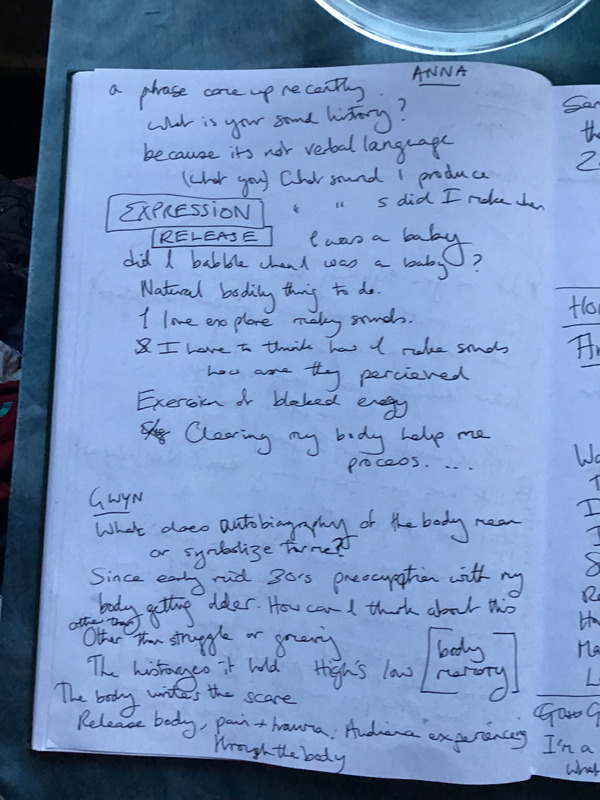 ANNA
a phrase come up recently.
what is your sound history?
because its not verbal language
(what you) what sound I produce
EXPRESSION " " s did I make when
RELEASE I was a baby
did I babble when I was a baby?
Natural bodily thing to do.
I love explore making sounds.
I have to think how I make sounds
how are they percieved
Exersion of blocked energy
Clearing my body help me
process. ...
GWYN
What does autobiography of the body mean
or symbolize to me?
Since early mid 30's preoccupation with my
body getting older. How can I think about this
other than
Other than struggle or grieving
The historages it hold High's low body
memory
The body writes the scare
Release body, pain + trauma. Audience experiencing
through the body
Ser
the
2
Hor
An
Wa
T
I
I
S
Re
Ha
Ma
L
Guso G
I'm a
what